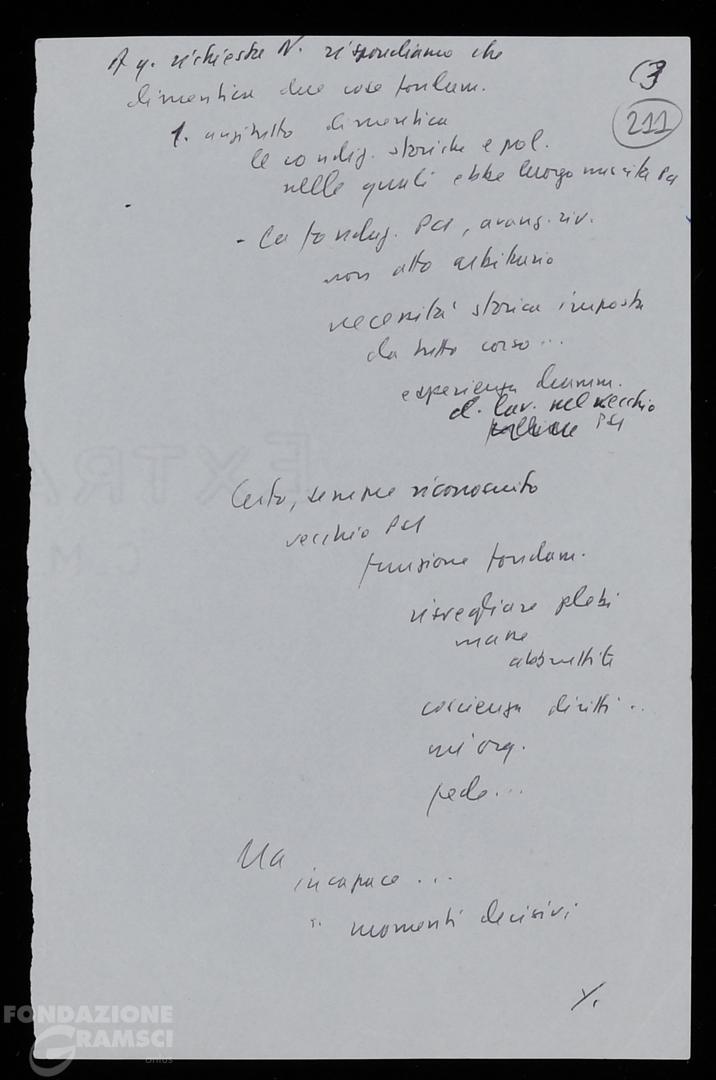 A q. richiesta N. rispondiamo che
(3
dimentica due cose fondam.
211
1. anzitutto dimentica
le condiz. storiche e pol.
nelle quali ebbe luogo nascita Pci
- La fondaz. PCI, avang. riv.
non atto arbitrario
necessità storica imposta
da tutto corso ...
esperienza dramm.
d. lav. nel vecchio
PSI
Certo, sempre riconosciuto
vecchio PSI
funzione fondam.
risvegliare plebi
masse
abbrutite
coscienza diritti ..
un'org.
fede ...
Ma
incapace ...
momenti decisivi
./.
EXTRA
FONDAZIONE
GRAMSCI
onlus